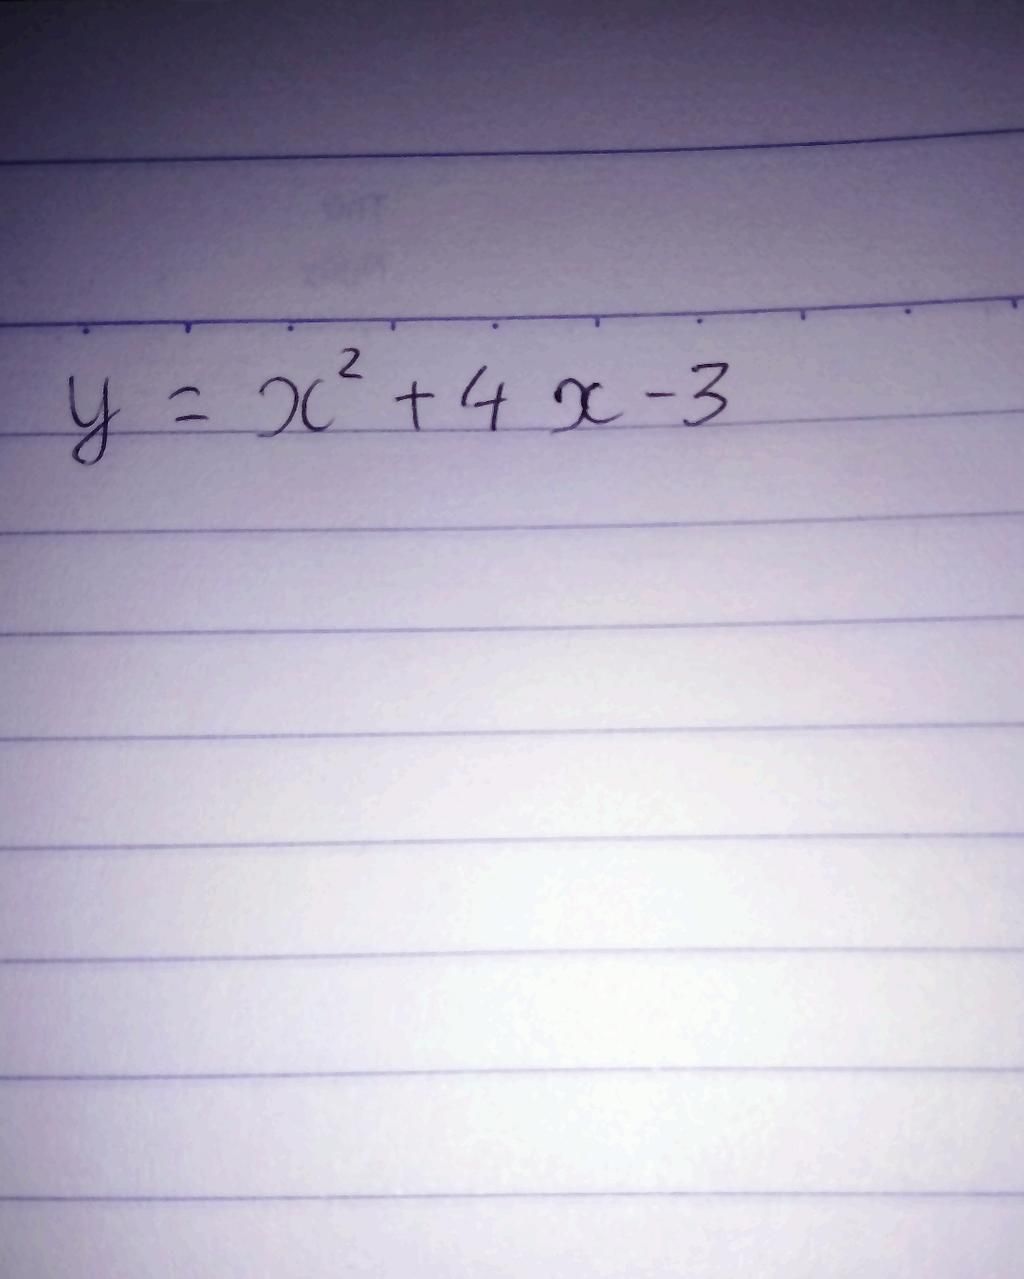 y = x² + 4x - 3